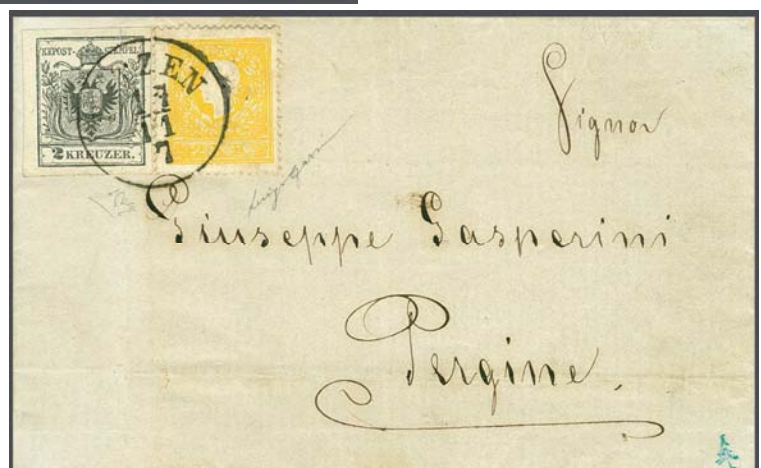 KKPOST-STEMPEL
2 KREUZER.
ZEN
11
7
Signor
Giuseppe Gasperini
Pergine.